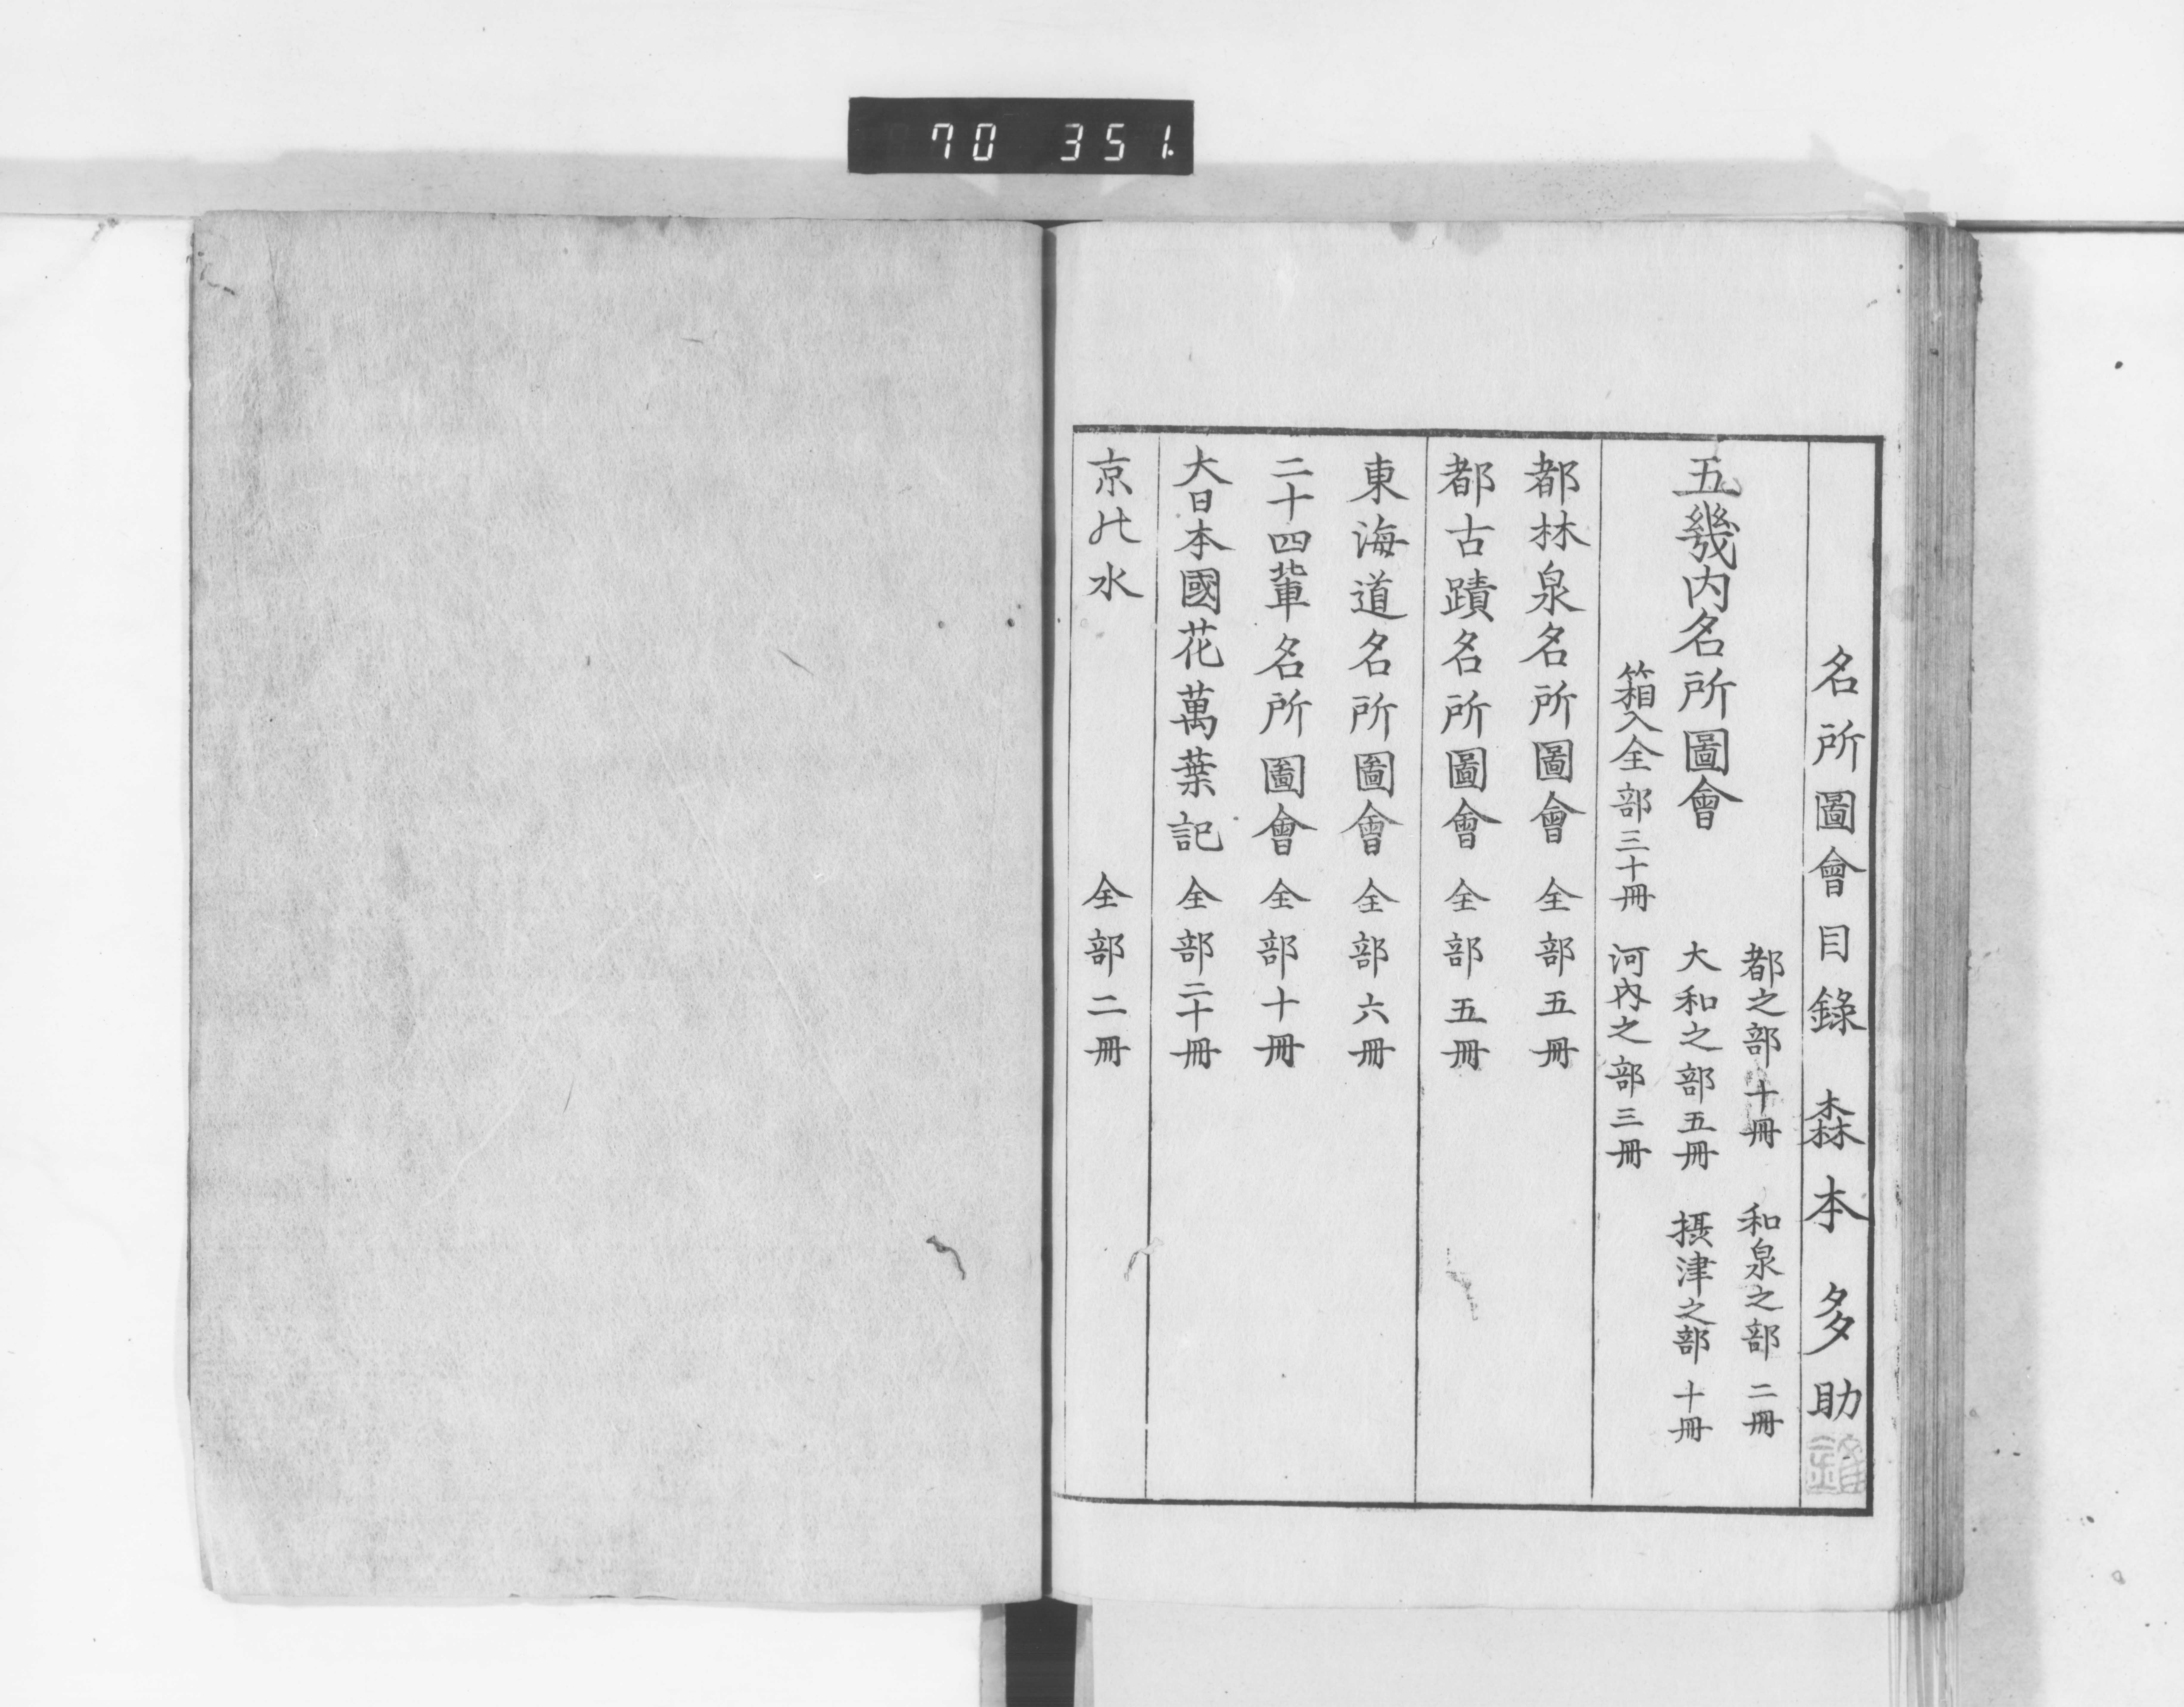 70 351
名所圖會目錄 森本多助
都之部十冊 和泉之部二冊
五幾内名所圖會 大和之部五冊 摂津之部十冊
箱入全部三十冊 河内之部三冊
都林泉名所圖會 全部五冊
都古蹟名所圖會 全部五冊
東海道名所圖會 全部六冊
二十四輩名所圖會 全部十冊
大日本國花萬葉記 全部二十冊
京の水 全部二冊